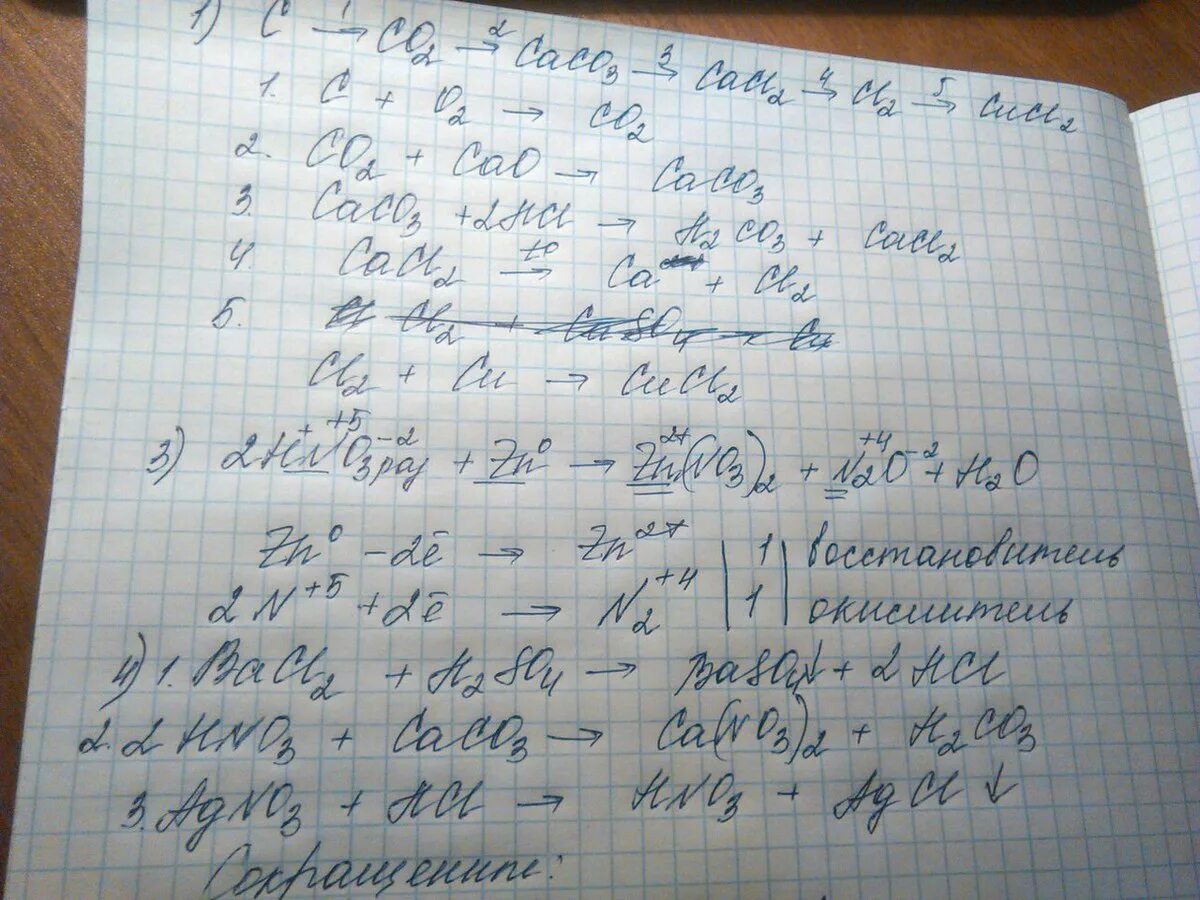 1) C →¹ CO₂ →² CaCO₃ →³ CaCl₂ →⁴ Cl₂ →⁵ CuCl₂
1. C + O₂ → CO₂
2. CO₂ + CaO → CaCO₃
3. CaCO₃ + 2HCl → H₂CO₃ + CaCl₂
4. CaCl₂ →ᵗ° Ca + Cl₂
5. Cl₂ + CuSO₄ → Cu
Cl₂ + Cu → CuCl₂
3) 2H⁺N⁺⁵O₃⁻² раз + Zn⁰ → Zn²⁺(NO₃)₂ + N₂⁺⁴O⁻² + H₂O
Zn⁰ - 2ē → Zn²⁺ | 1 | восстановитель
2N⁺⁵ + 2ē → N₂⁺⁴ | 1 | окислитель
4) 1. BaCl₂ + H₂SO₄ → BaSO₄↓ + 2HCl
2. 2HNO₃ + CaCO₃ → Ca(NO₃)₂ + H₂CO₃
3. AgNO₃ + HCl → HNO₃ + AgCl↓